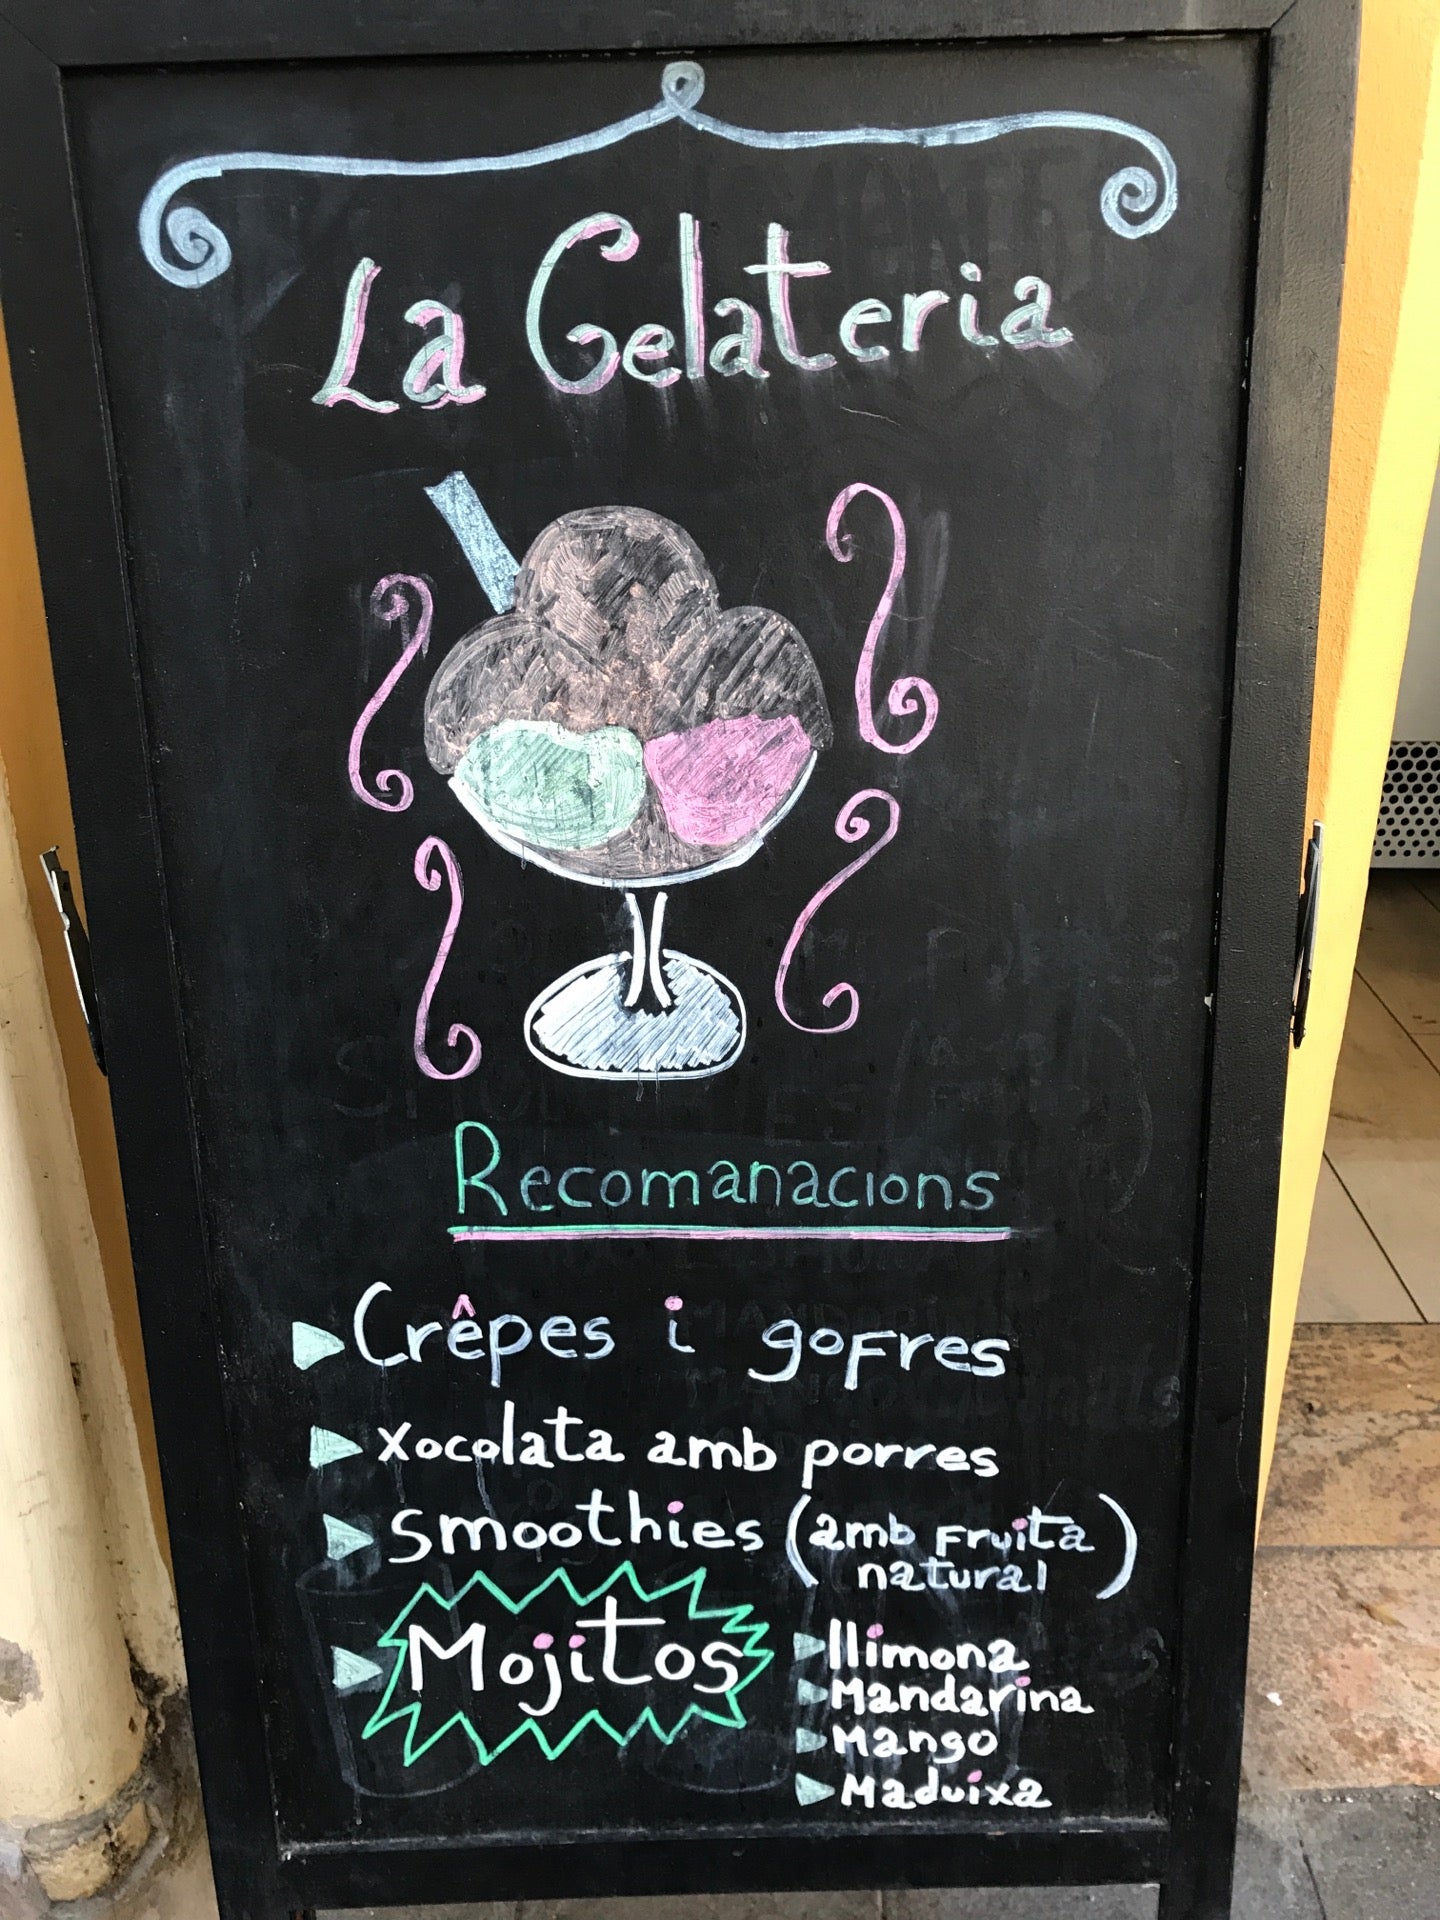 La Gelateria
Recomanacions
Crêpes i gofres
xocolata amb porres
Smoothies (amb fruita
natural)
Mojitos
llimona
Mandarina
Mango
Maduixa